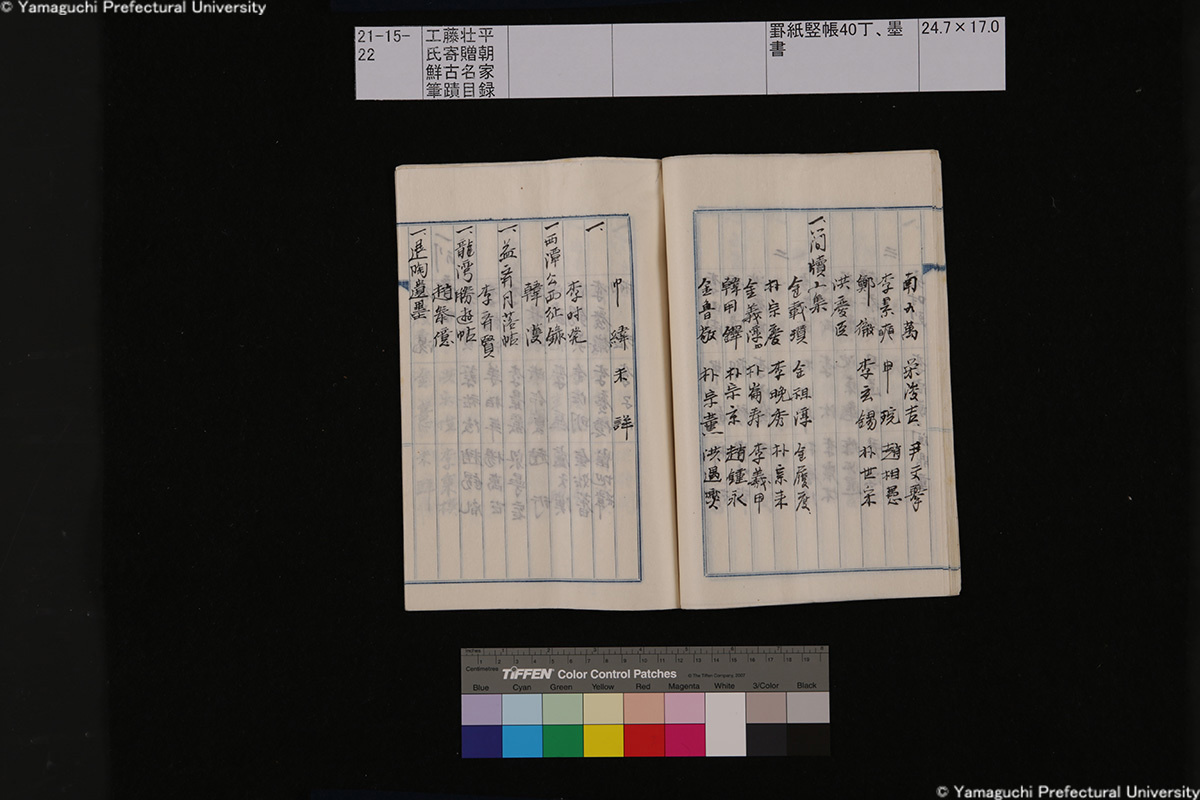 © Yamaguchi Prefectural University
21-15-
22
工藤壮平
氏寄贈朝
鮮古名家
筆蹟目録
罫紙竪帳40丁、墨
書
24.7×17.0
南九萬 梁浚吉 尹文擧
李景奭 申琓 趙相愚
鄭徽 李玄錫 朴世宋
洪慶臣
一、簡牘上集
金義瓚 金祖淳 金履度
朴宗慶 李晩秀 朴宗来
金義淳 朴崙寿 李羲甲
韓甲鐸 朴宗京 趙鍾永
金魯敬 朴宗薫 洪遇燮
申緯 未詳
一、
李時発
一、西潭公西征録
韓濩
一、益斎月落帖
李斉賢
一、龍湾勝遊帖
趙奉億
一、退陶遺墨
inches
Centimetres
TIFFEN Color Control Patches
© The Tiffen Company, 2007
Blue Cyan Green Yellow Red Magenta White 3/Color Black
© Yamaguchi Prefectural University